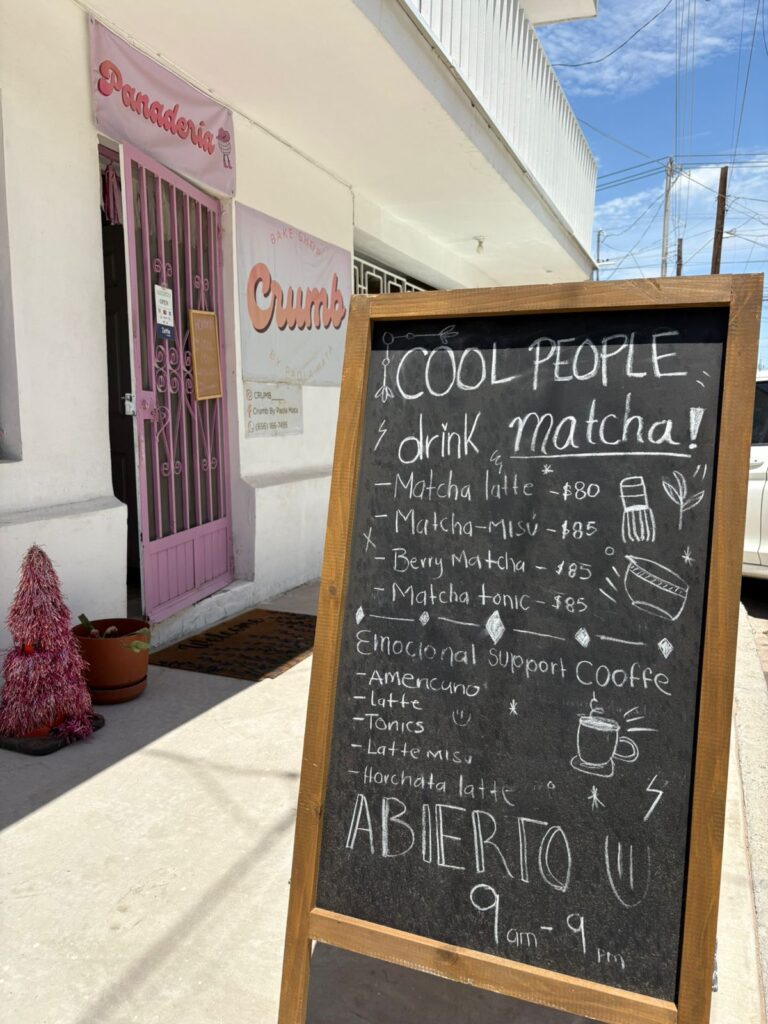 Panadería
BAKE SHOP
Crumb
BY PAOLA MATA
CRUMB____
Crumb By Paola Mata
OPEN
COOL PEOPLE
drink matcha!
- Matcha latte - $80
- Matcha-misú - $85
- Berry Matcha - $85
- Matcha tonic - $85
Emocional support Cooffe
- Americano
- latte
- Tonics
- Latte misu
- Horchata latte
ABIERTO
9am - 9pm